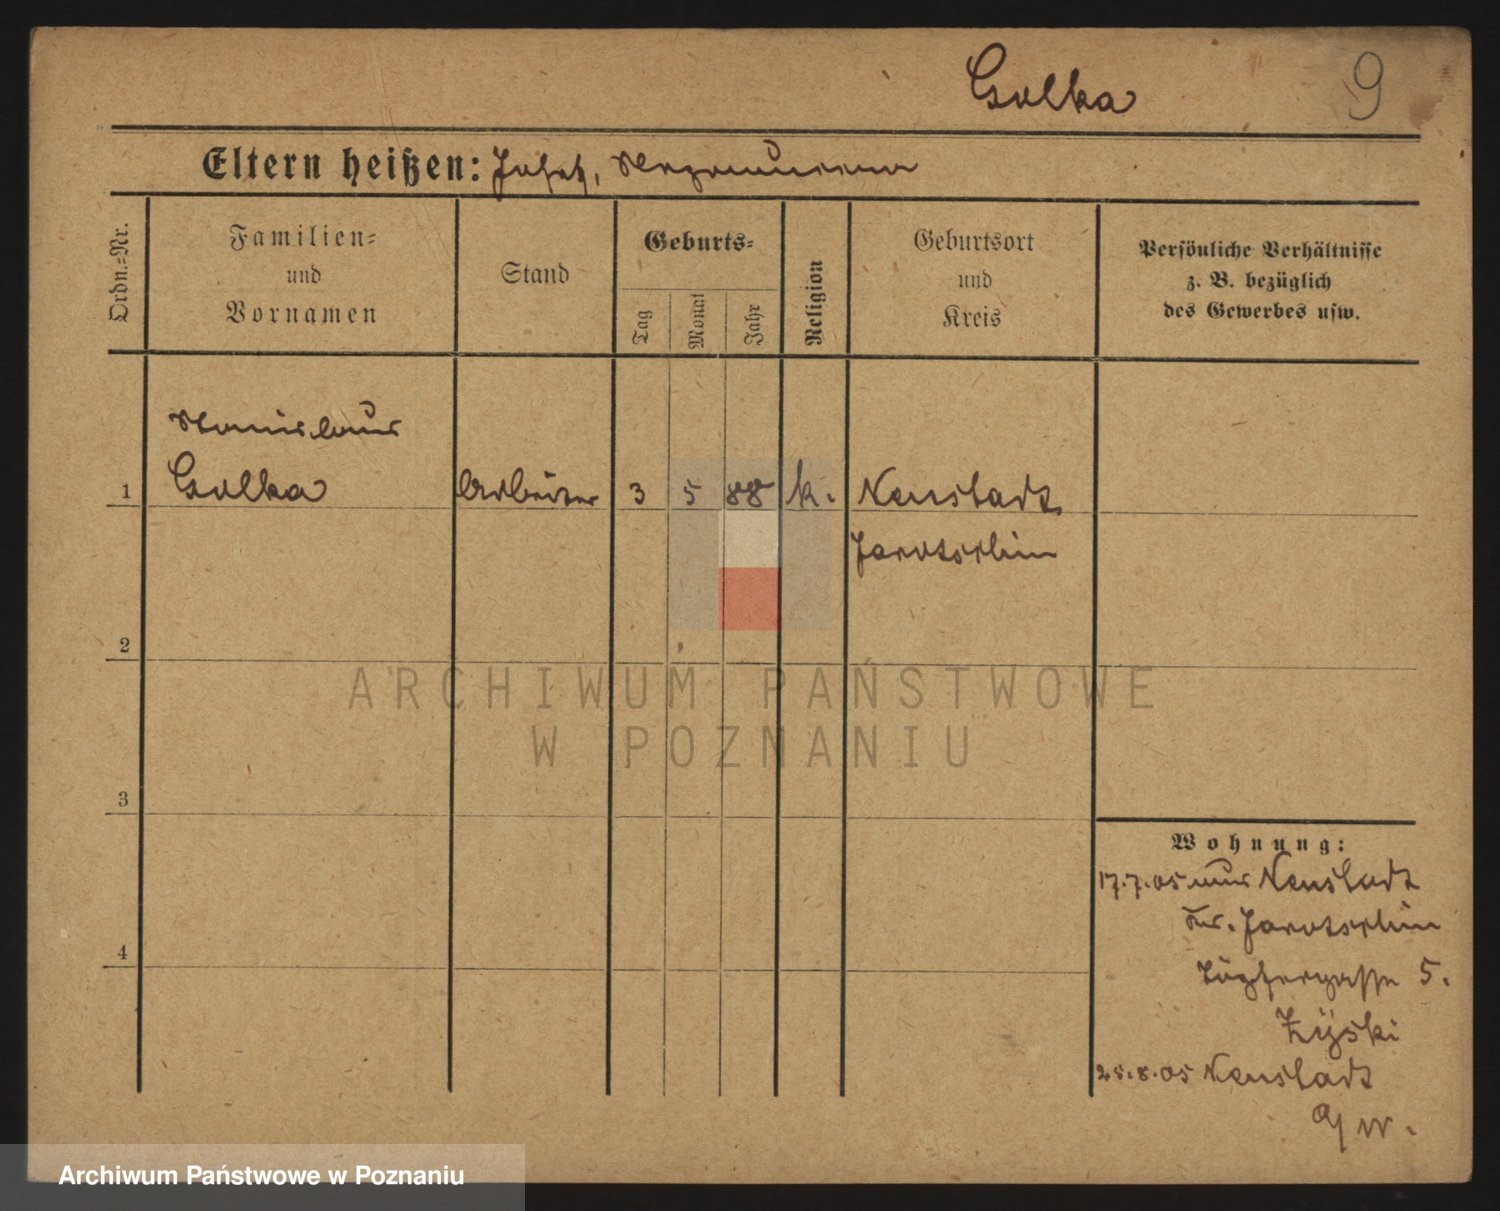 Golka
9
Eltern heißen: Josef,
Ordn.-Nr.
Familien-
und
Vornamen
Stand
Geburts-
Tag
Monat
Jahr
Religion
Geburtsort
und
Kreis
Persönliche Verhältnisse
z. B. bezüglich
des Gewerbes usw.
Stanislaus
1 Golka Arbeiter 3 5 88 k. Neustadt
Jarotschin
2
ARCHIWUM PAŃSTWOWE
W POZNANIU
3
Wohnung:
17.7.05 aus Neustadt
Kr. Jarotschin
4
5.
Zyski
25.8.05 Neustadt
a/W.
Archiwum Państwowe w Poznaniu